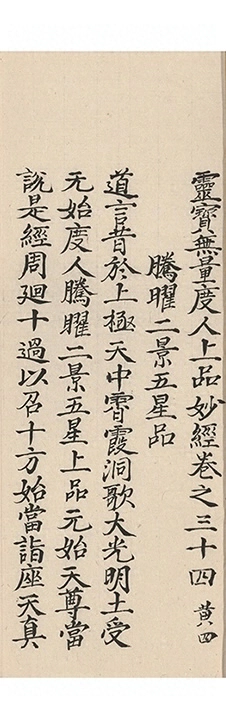 靈寶無量度人上品妙經卷之三十四 黃四
騰曜二景五星品
道言昔於上極天中霄霞洞歌大光明土受
元始度人騰曜二景五星上品元始天尊當
說是經周廻十過以召十方始當詣座天真